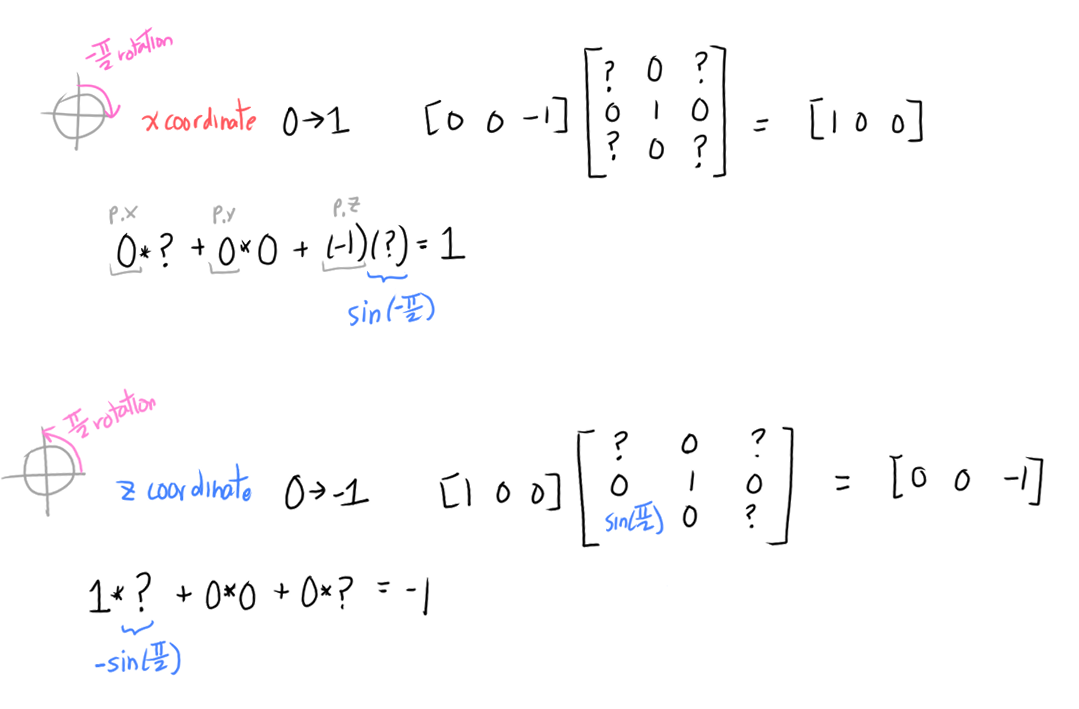 -π/2 rotation
x coordinate 0→1 [0 0 -1] [? 0 ?
0 1 0
? 0 ?] = [1 0 0]
p.x p.y p.z
0*? + 0*0 + (-1)(?) = 1
sin(-π/2)
π/2 rotation
z coordinate 0→-1 [1 0 0] [? 0 ?
0 1 0
sin(π/2) 0 ?] = [0 0 -1]
1*? + 0*0 + 0*? = -1
-sin(π/2)